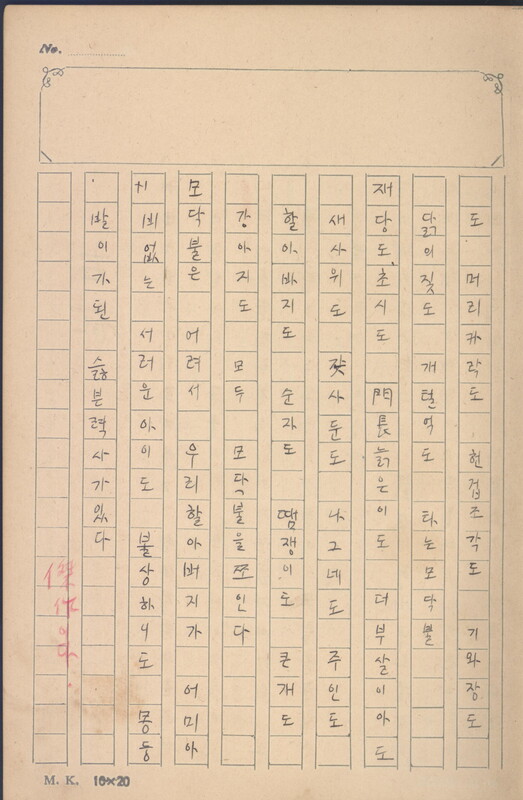 No.
도 머리카락도 헌겁조각도 기와장도
닭의짗도 개털억도 타는모닥불
재당도、초시도 門長늙은이도 더부살이아도
새사위도 갖사둔도 나그네도 주인도
할아바지도 순자도 땜쟁이도 큰개도
강아지도 모두 모닥불을쪼인다
모닥불은 어려서 우리할아버지가 어미아
비없는 서러운아이도 불상하니도 몽둥
발이가된 슳븐력사가있다
傑作이다.
M. K. 10×20